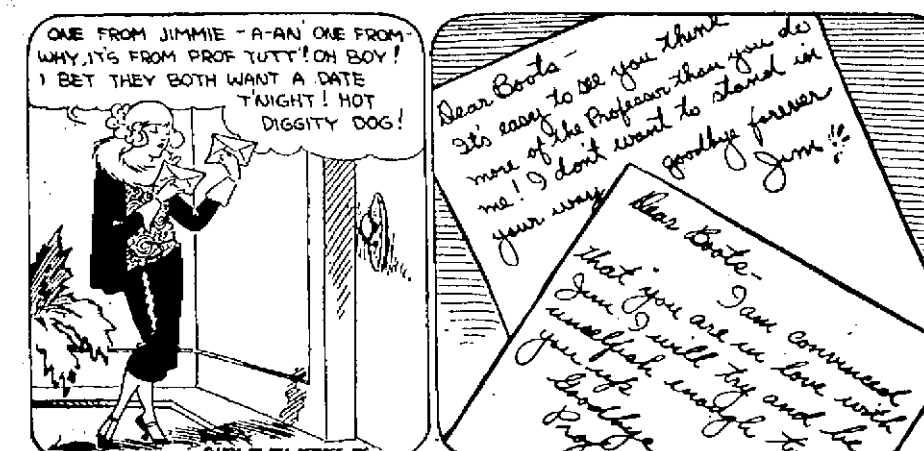 ONE FROM JIMMIE - A-AN' ONE FROM-
WHY, IT'S FROM PROF TUTT! OH BOY!
I BET THEY BOTH WANT A DATE
T'NIGHT! HOT
DIGGITY DOG!
Dear Boots-
It's easy to see you think
more of the Professor than you do
me! I don't want to stand in
your way goodbye forever
Jim!!
Dear Boots-
I am convinced
that you are in love with
Jim I will try and be
unselfish enough
you up
Goodbye